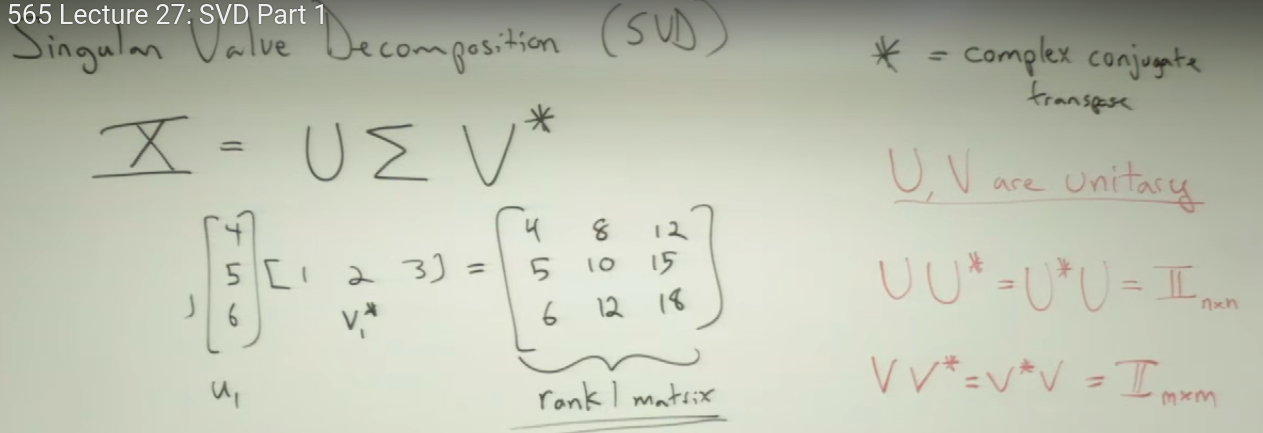 565 Lecture 27: SVD Part 1
Singular Value Decomposition (SVD)
X = U Σ V*
[4 5 6] [1 2 3] = [4 8 12
5 10 15
6 12 18]
u₁
V₁*
rank 1 matrix
* = complex conjugate
transpose
U, V are unitary
UU* = U*U = I n×n
VV* = V*V = I m×m